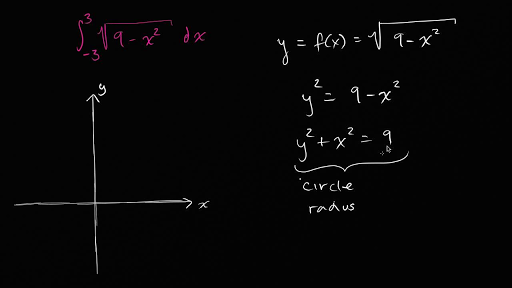 ∫₋₃³ √(9 - x²) dx
y = f(x) = √(9 - x²)
y² = 9 - x²
y² + x² = 9
circle
radius
y
x